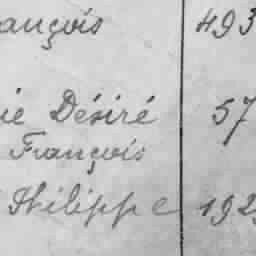 ançois 493
ie Désiré 57
François
Philippe 192